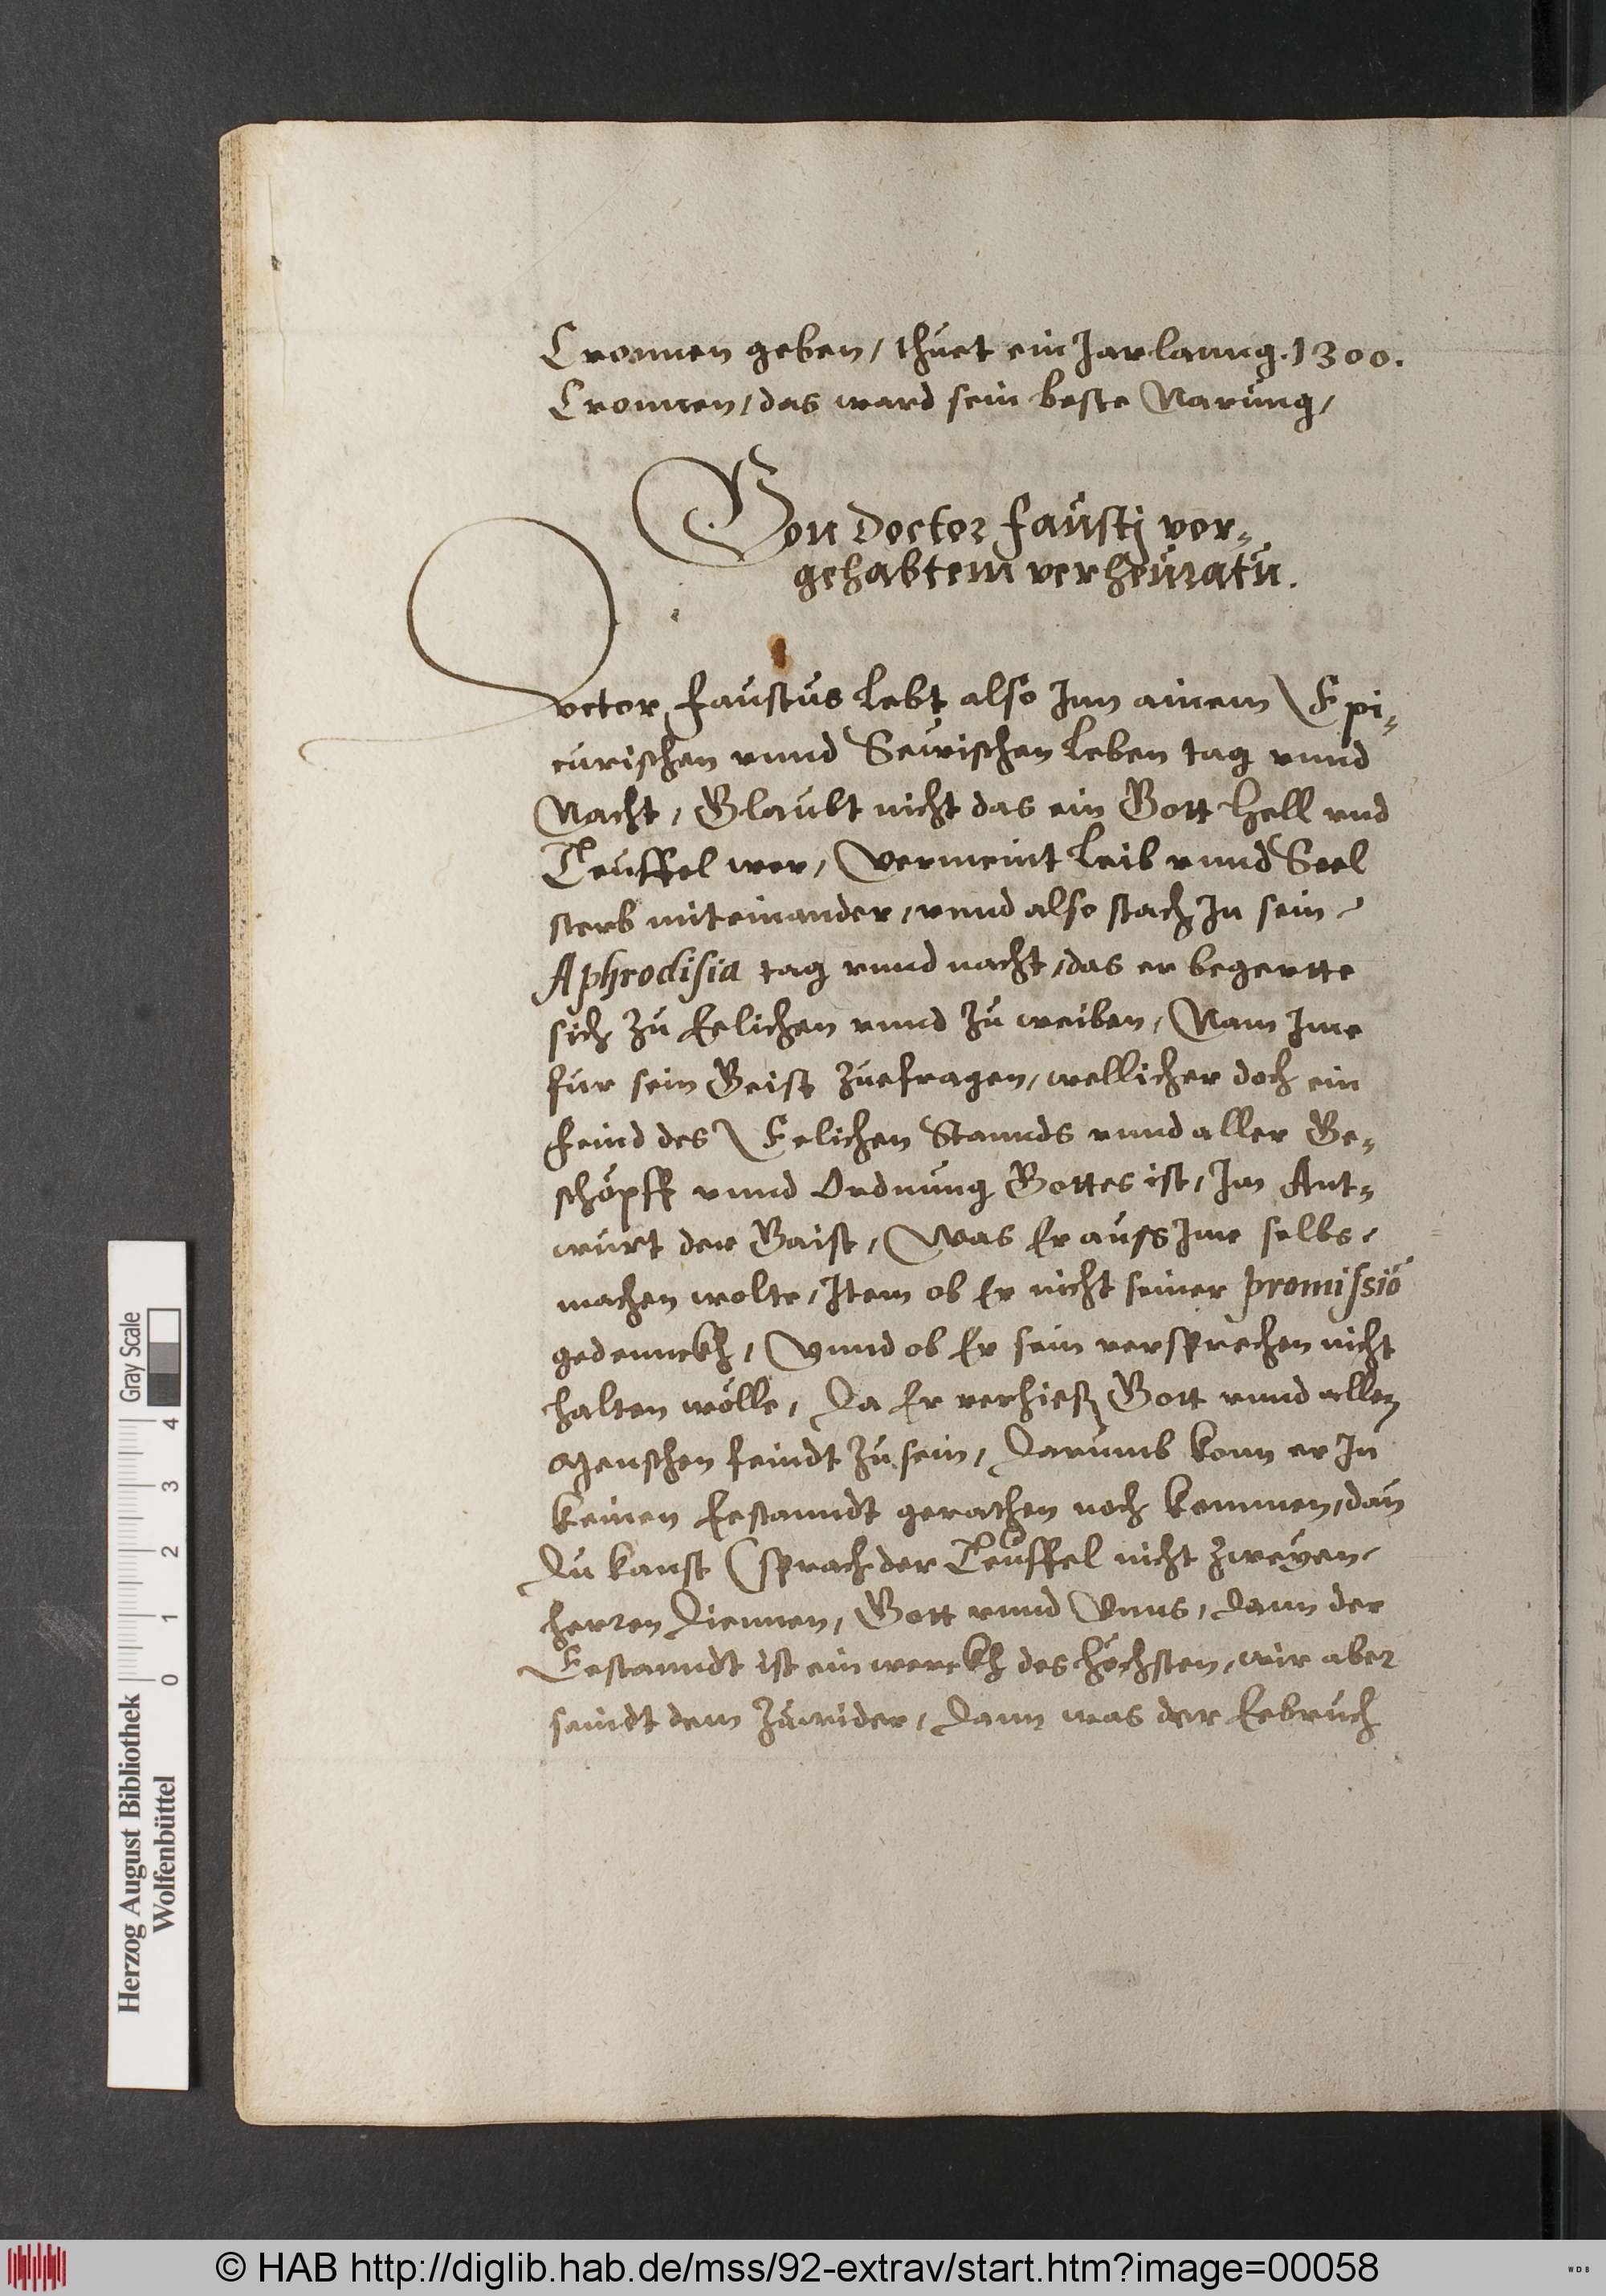 Cronnen geben / thuet ein Jar lanng. 1300.
Cronnen / das ward sein beste Narung /
Von Doctor Faustj vor-
gehabtem verheuratn.
Doctor Faustus lebt also Jnn ainem Epi-
curischen vnnd Sewischen leben tag vnnd
Nacht / Glaubt nicht das ein Gott Hell vnd
Teuffel wer / Vermeint leib vnnd Seel
sterb miteinander / vnnd also stach Jn sein
Aphrodisia tag vnnd nacht / das er begertte
sich zu Eelichen vnnd zu weiben / Nam Jme
fur sein Geist zuefragen / wellicher doch ein
feind des Eelichen Stannds vnnd aller Ge-
schöpff vnnd Ordnung Gottes ist / Jm Ant-
wurt der Gaist / Was Er auss Jme selbs
machen wolte / Jtem ob Er nicht seiner promissiō
gedennckh / Vnnd ob Er sein versprechen nicht
halten wölle / Da Er verhieß Gott vnnd allen
Menschen feindt zu sein / Darumb konn er Jn
keinen Eestanndt gerathen noch kommen / dan̄
Du kanst (sprach der Teuffel nicht zweyen
herren Diennen / Gott vnnd Vnns / Dann der
Eestanndt ist ein werckh des höchsten / wir aber
seindt dem Zuwider / Dann was der Eebruch
Herzog August Bibliothek
Wolfenbüttel
0 1 2 3 4
Gray Scale
© HAB http://diglib.hab.de/mss/92-extrav/start.htm?image=00058
WDB